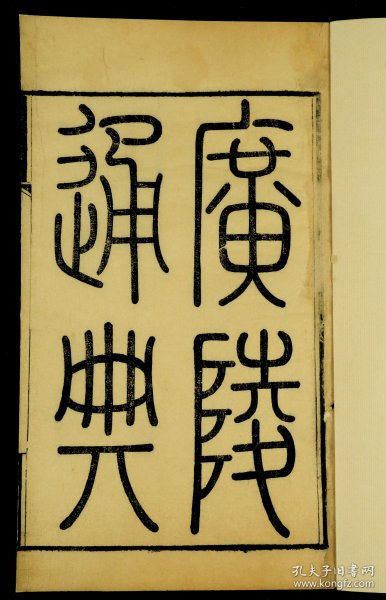 廣陵
通典
孔夫子旧书网
www.kongfz.com